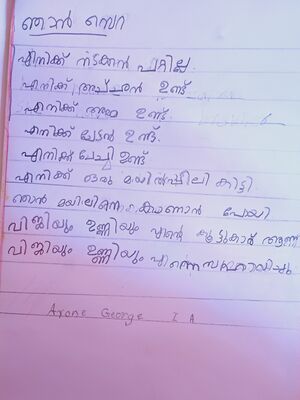 ഞാൻ സെറ
എനിക്ക് നടക്കാൻ പറ്റില്ല.
എനിക്ക് അച്ഛൻ ഉണ്ട്
എനിക്ക് അമ്മ ഉണ്ട്.
എനിക്ക് ചേട്ടൻ ഉണ്ട്.
എനിക്ക് ചേച്ചി ഉണ്ട്
എനിക്ക് ഒരു മയിൽപ്പീലി കിട്ടി.
ഞാൻ മയിലിനെ കാണാൻ പോയി
വിജിയും ഉണ്ണിയും എന്റെ കൂട്ടുകാർ ആണ്
വിജിയും ഉണ്ണിയും എന്നെ സഹായിച്ചു
Arone George I A